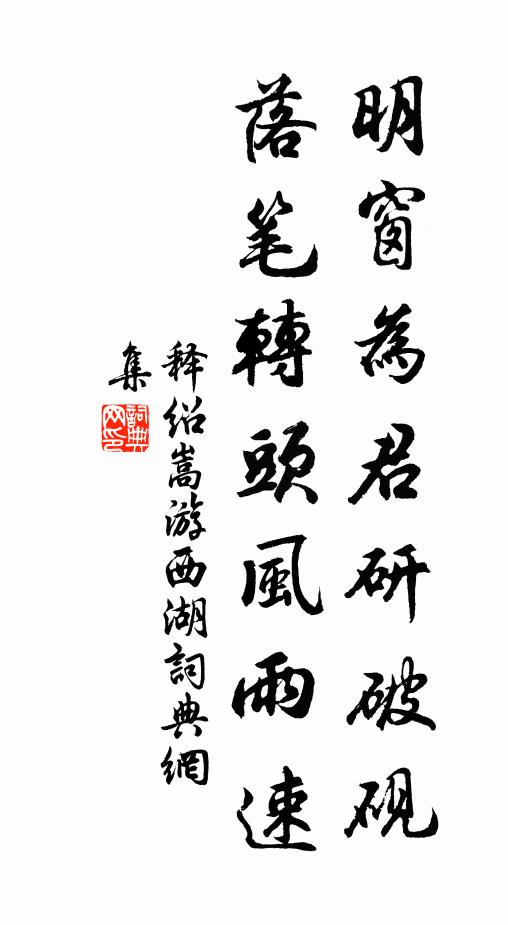 明窗為君研破硯
落笔轉頭風雨速
释绍嵩游西湖詞典網
集
詞典网印